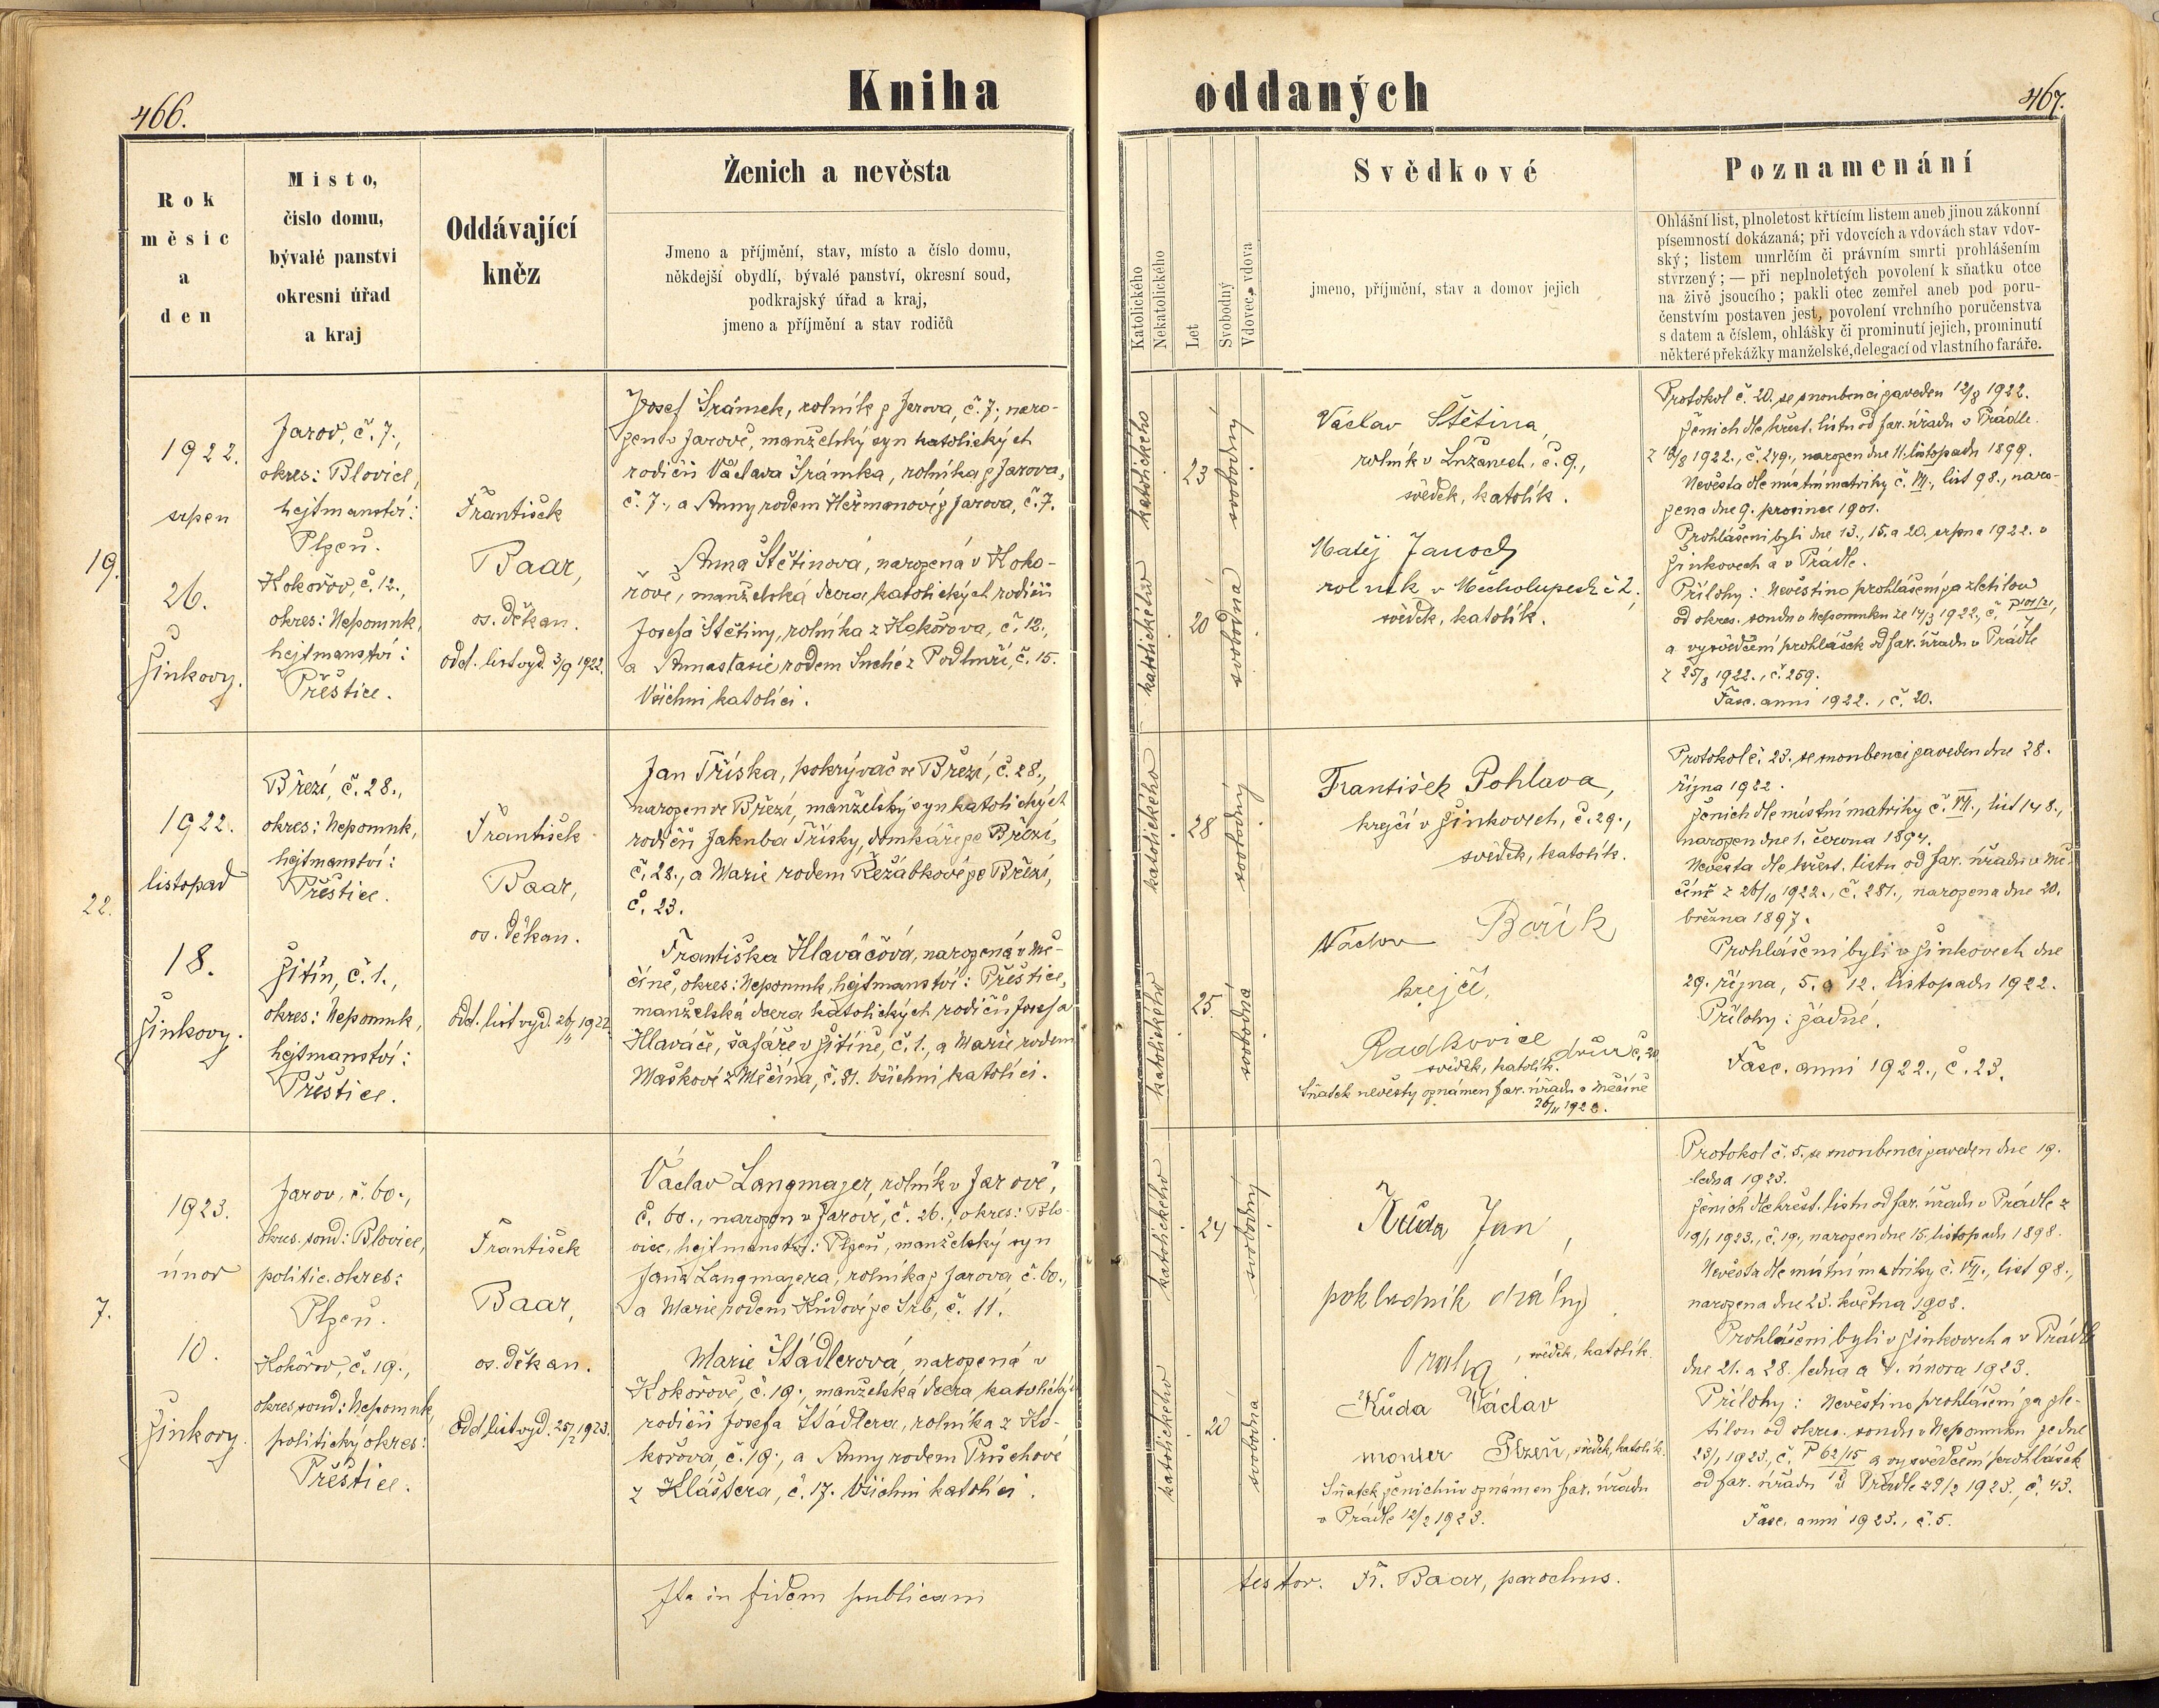 466.
Kniha
oddaných
467.
Rok
měsíc
a
den
Místo,
číslo domu,
bývalé panství
okresní úřad
a kraj
Oddávající
kněz
Ženich a nevěsta
Jmeno a příjmění, stav, místo a číslo domu,
někdejší obydlí, bývalé panství, okresní soud,
podkrajský úřad a kraj,
jmeno a příjmění a stav rodičů
Katolického
Nekatolického
Let
Svobodný
Vdovec, vdova
Svědkové
jmeno, příjmění, stav a domov jejich
Poznamenání
Ohlášní list, plnoletost křtícím listem aneb jinou zákonní
písemností dokázaná; při vdovcích a vdovách stav vdov-
ský; listem umrlčím či právním smrti prohlášením
stvrzený; — při neplnoletých povolení k sňatku otce
na živě jsoucího; pakli otec zemřel aneb pod poru-
čenstvím postaven jest, povolení vrchního poručenstva
s datem a číslem, ohlášky či prominutí jejich, prominutí
některé překážky manželské, delegací od vlastního faráře.
19.
1922.
srpen
26.
Žinkovy.
Jarov, č. 7.,
okres: Blovice,
hejtmanství:
Plzeň.
Kokořov, č. 12.,
okres: Nepomuk,
hejtmanství:
Přeštice.
František
Baar,
os. děkan.
odd. list vyd. 3/9 1922.
Josef Šrámek, rolník z Jarova, č. 7., naro-
zen v Jarově, manželský syn katolických
rodičů Václava Šrámka, rolníka z Jarova,
č. 7., a Anny rodem Heřmanovi z Jarova, č. 7.
Anna Štětinová, narozená v Koko-
řově, manželská dcera katolických rodičů
Josefa Štětiny, rolníka z Kokořova, č. 12.,
a Annastasie rodem Suché z Podhuří, č. 15.
Všichni katolíci.
katolického
23
svobodný
katolického
20
svobodná
Václav Štětina,
rolník v Lužanech, č. 9.,
svědek, katolík.
Matěj Janoch
rolnik v Mecholupech č 2,
svědek, katolík.
Protokol č. 20. se snoubenci zaveden 12/8 1922.
Ženich dle křest. listu od far. úřadu v Prádle
z 12/8 1922., č. 249., narozen dne 11. listopadu 1899.
Nevěsta dle místní matriky č. VII., list 98., naro-
zena dne 9. prosince 1901.
Prohlášeni byli dne 13., 15. a 20. srpna 1922. v
Žinkovech a v Prádle.
Přílohy: Nevěstino prohlášení za zletilou
od okres. soudu v Nepomuku ze 14/3 1922, č. P 101/21,
a vysvědčení prohlášek od far. úřadu v Prádle
z 25/8 1922., č. 259.
Fasc. anni 1922., č. 20.
22.
1922.
listopad
18.
Žinkovy.
Březí, č. 28.,
okres: Nepomuk,
hejtmanství:
Přeštice.
Žitín, č. 1.,
okres: Nepomuk,
hejtmanství:
Přeštice.
František
Baar,
os. děkan.
odd. list vyd. 26/11 1922
Jan Tříska, pokrývač ve Březí, č. 28.,
narozen ve Březí, manželský syn katolických
rodičů Jakuba Třísky, domkáře ze Březí,
č. 28., a Marie rodem Řežábkové ze Březí,
č. 23.
Františka Hlaváčová, narozená v Mě-
číně, okres: Nepomuk, hejtmanství: Přeštice,
manželská dcera katolických rodičů Josefa
Hlaváče, šafáře v Žitíně, č. 1., a Marie rodem
Maškové z Měčína, č. 81. Všichni katolíci.
katolického
28
svobodný
katolického
25.
svobodná
František Pohlava,
krejčí v Žinkovech, č. 29.,
svědek, katolík.
Václav Bořík
krejčí,
Radkovice dvůr č. 20
svědek, katolík.
Sňatek nevěsty oznámen far. úřadu v Měčíně
26/11 1922.
Protokol č. 23. se snoubenci zaveden dne 28.
října 1922.
Ženich dle místní matriky č. VII., list 148.,
narozen dne 1. června 1894.
Nevěsta dle křest. listu od far. úřadu v Mě-
číně z 26/10 1922., č. 281., narozena dne 20.
března 1897.
Prohlášeni byli v Žinkovech dne
29. října, 5. a 12. listopadu 1922.
Přílohy: žádné.
Fasc. anni 1922., č. 23.
7.
1923.
únor
10.
Žinkovy.
Jarov, č. 60.,
okres. soud: Blovice,
politic. okres:
Plzeň.
Kokořov, č. 19.,
okres. soud: Nepomuk,
politický okres:
Přeštice.
František
Baar,
os. děkan.
Odd. list vyd. 25/2 1923.
Václav Langmajer, rolník v Jarově,
č. 60., narozen v Jarově, č. 26., okres: Blo-
vice, hejtmanství: Plzeň, manželský syn
Jana Langmajera, rolníka z Jarova č. 60.,
a Marie rodem Kůdovi ze Srb, č. 11.
Marie Štádlerová, narozená v
Kokořově, č. 19., manželská dcera katolických
rodičů Josefa Štádlera, rolníka z Ko-
kořova, č. 19., a Anny rodem Průchové
z Kláštera, č. 17. Všichni katolíci.
katolického
24
svobodný
katolického
20
svobodná
Kůda Jan,
pokladník dráhy
Praha, svědek, katolík.
Kůda Václav
monter Plzeň, svědek, katolík.
Sňatek ženichův oznámen far. úřadu
v Prádle 12/2 1923.
Protokol č. 5. se snoubenci zaveden dne 19.
ledna 1923.
Ženich dle křest. listu od far. úřadu v Prádle z
19/1 1923., č. 19., narozen dne 15. listopadu 1898.
Nevěsta dle místní matriky č. VII., list 98.,
narozena dne 23. května 1902.
Prohlášeni byli v Žinkovech a v Prádle
dne 21. a 28. ledna a 4. února 1923.
Přílohy: Nevěstino prohlášení za zle-
tilou od okres. soudu v Nepomuku ze dne
23/1 1923., č. P 62/15 a vysvědčení prohlášek
od far. úřadu v Prádle z 9/2 1923., č. 43.
Fasc. anni 1923., č. 5.
Ita in fidem publicam
testor. Fr. Baar, parochus.